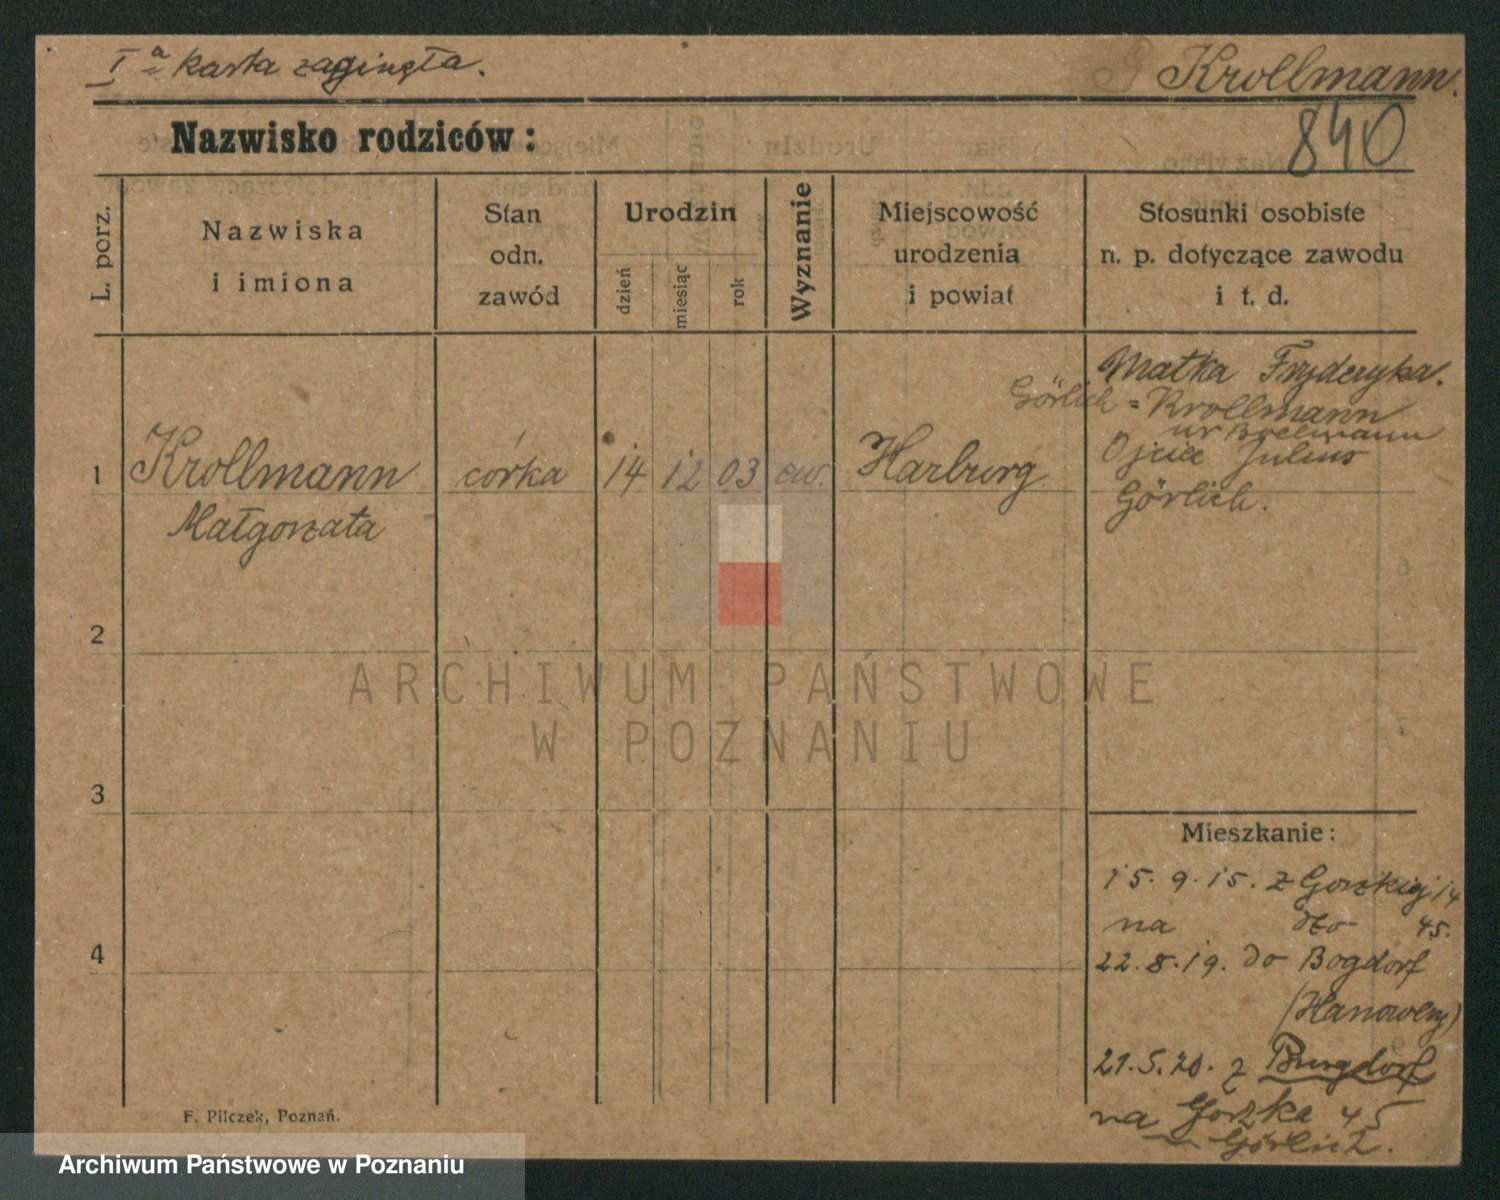 Iᵃ karta zaginęła.
Krollmann.
840
Nazwisko rodziców:
L. porz.
Nazwiska
i imiona
Stan
odn.
zawód
Urodzin
dzień
miesiąc
rok
Wyznanie
Miejscowość
urodzenia
i powiat
Stosunki osobiste
n. p. dotyczące zawodu
i t. d.
1
Krollmann
Małgorzata
córka
14
12
03
ew.
Harburg
Matka Fryderyka.
Görlich = Krollmann
ur
Ojciec Julius
Görlich.
2
3
4
Mieszkanie:
15.9.15. z Gorzkiej 14
na dto 45.
22.8.19. do Bogdorf
(Hanower)
21.5.20. z Burgdorf
na Gorzka 45
Görlich.
F. Pilczek, Poznań.
ARCHIWUM PAŃSTWOWE
W POZNANIU
Archiwum Państwowe w Poznaniu